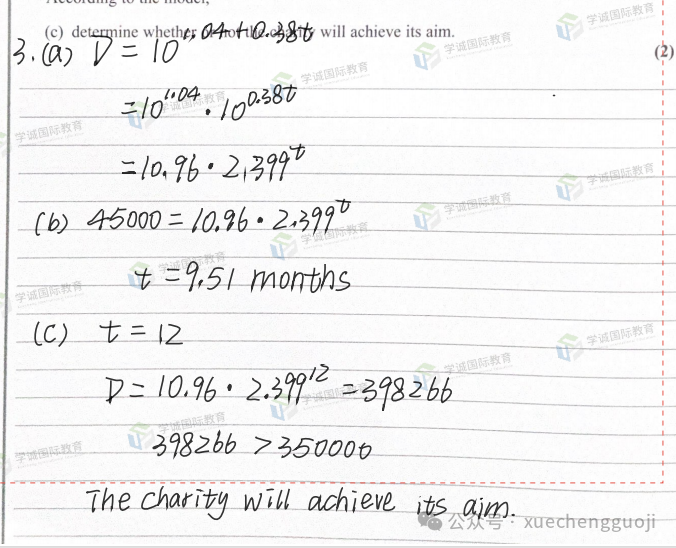 (c) determine whether or not the charity will achieve its aim.
(2)
3.(a) D = 10^1.04+0.38t
=10^1.04 · 10^0.38t
=10.96 · 2.399^t
(b) 45000 = 10.96 · 2.399^t
t = 9.51 months
(C) t = 12
D = 10.96 · 2.399^12 = 398266
398266 > 350000
The charity will achieve its aim.
公众号 · xuechengguoji
学诚国际教育